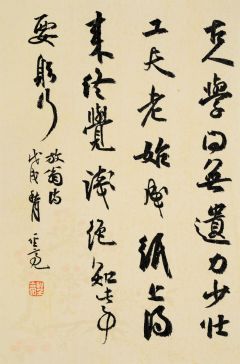 古人學問無遺力少壯
工夫老始成紙上得
來終覺淺絕知此事
要躬行
放翁詩
戊戌